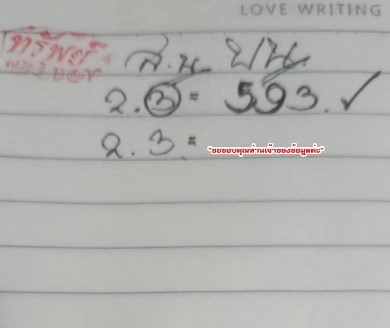 LOVE WRITING
ทรัพย์
ส.น. บน
2.3 = 593. ✓
2.3 =
"ขอขอบคุณท่านเจ้าของข้อมูลค่ะ"